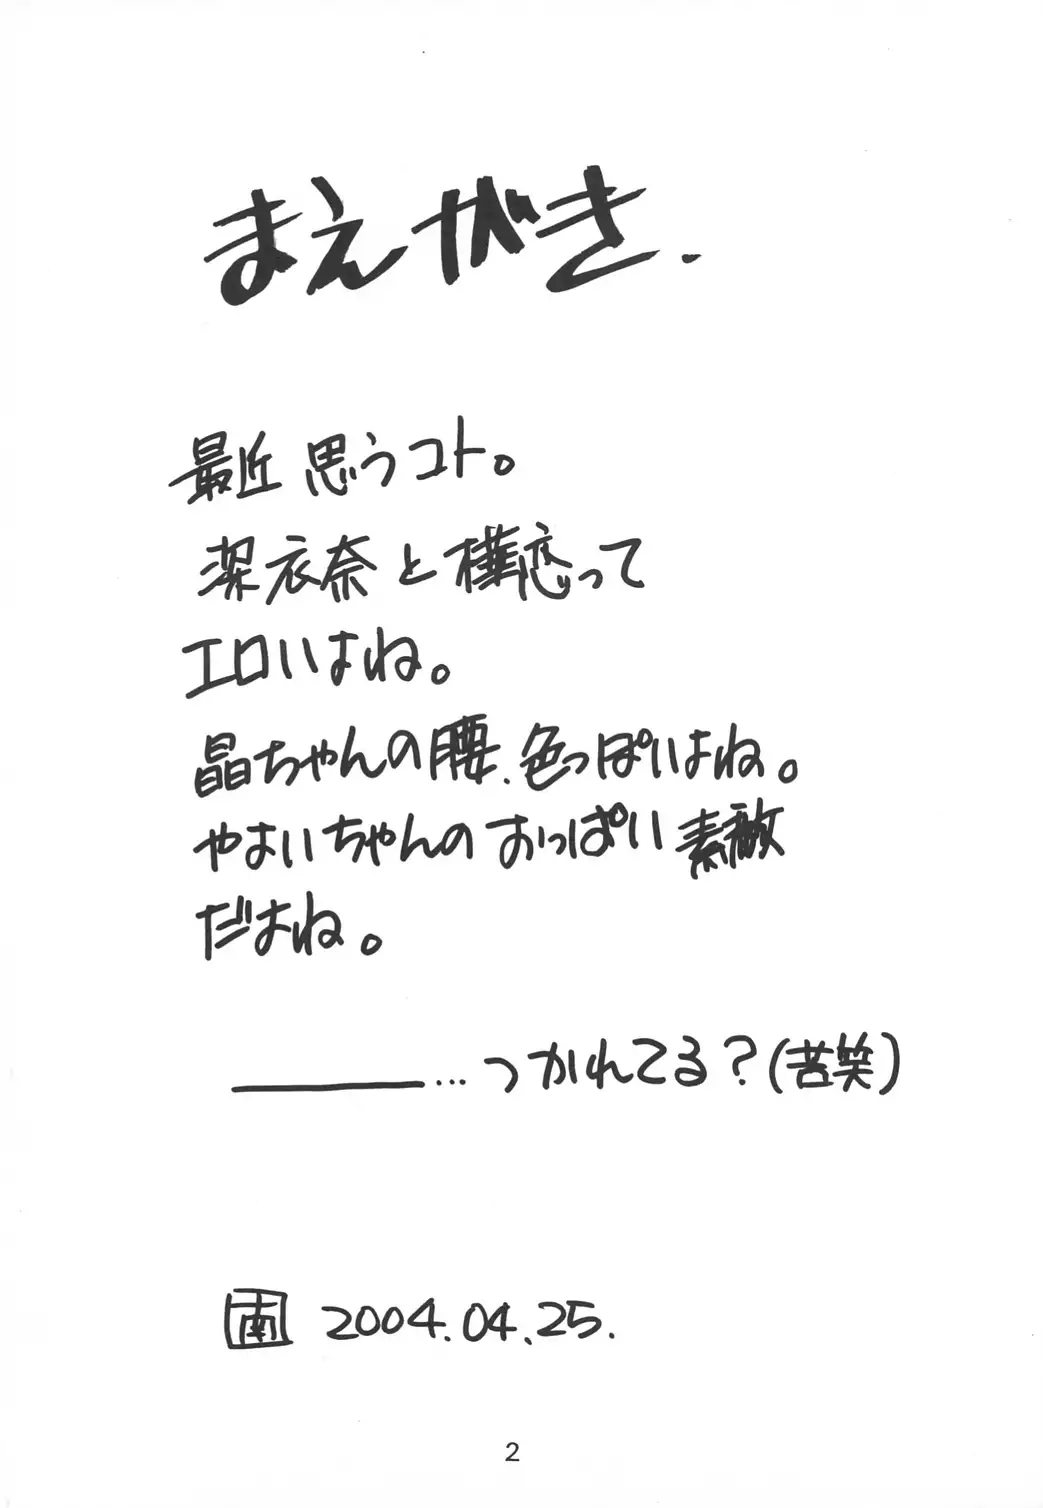 まえがき.
最近思うコト。
深衣奈と樺恋って
エロいよね。
晶ちゃんの腰、色っぽいよね。
やよいちゃんのおっぱい素敵
だよね。
————…つかれてる?(苦笑)
南 2004.04.25.
2